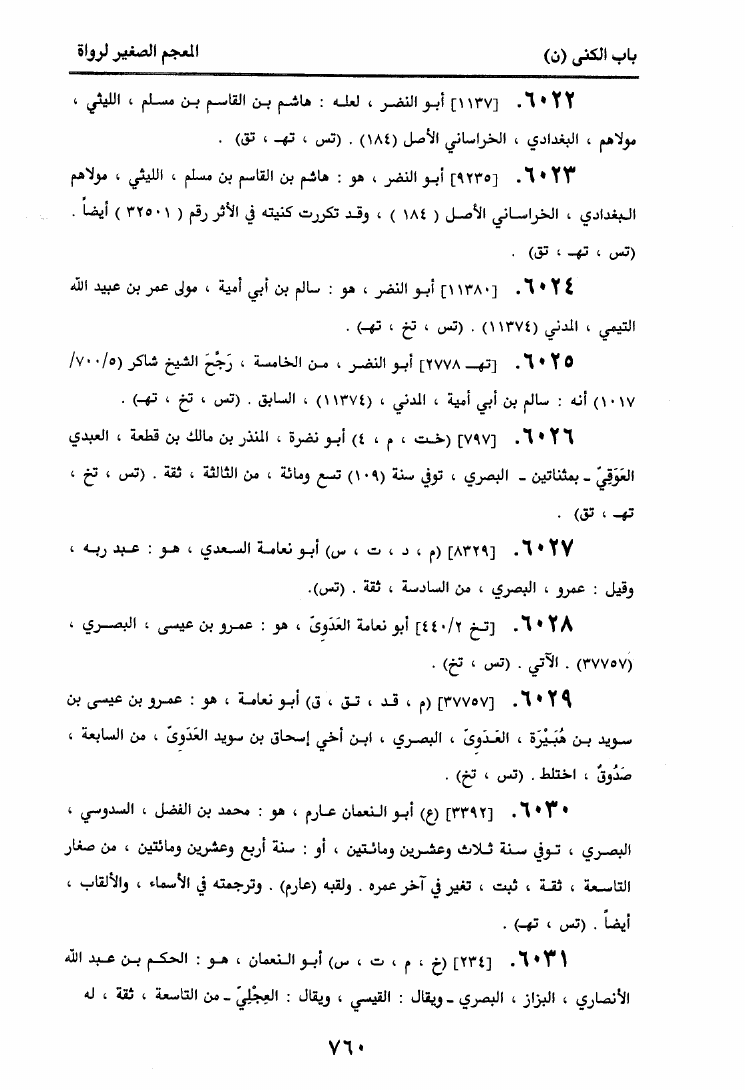 باب الكنى (ن) المعجم الصغير لرواة
٦٠٢٢. [١١٣٧] أبو النضر ، لعله : هاشم بن القاسم بن مسلم ، الليثي ،
مولاهم ، البغدادي ، الخراساني الأصل (١٨٤) . (تس ، تهـ ، تق) .
٦٠٢٣. [٩٢٣٥] أبو النضر ، هو : هاشم بن القاسم بن مسلم ، الليثي ، مولاهم
البغدادي ، الخراساني الأصل ( ١٨٤ ) ، وقد تكررت كنيته في الأثر رقم ( ٣٢٥٠١ ) أيضاً .
(تس ، تهـ ، تق) .
٦٠٢٤. [١١٣٨٠] أبو النضر ، هو : سالم بن أبي أمية ، مولى عمر بن عبيد الله
التيمي ، المدني (١١٣٧٤) . (تس ، تخ ، تهـ) .
٦٠٢٥. [تهـ ٢٧٧٨] أبو النضر ، من الخامسة ، رَجْحَ الشيخ شاكر (٧٠٠/٥/
١٠١٧) أنه : سالم بن أبي أمية ، المدني ، (١١٣٧٤) ، السابق . (تس ، تخ ، تهـ) .
٦٠٢٦. [٧٩٧] (خت ، م ، ٤) أبو نضرة ، المنذر بن مالك بن قطعة ، العبدي
العَوَقِيّ ـ بمثناتين ـ البصري ، توفي سنة (١٠٩) تسع ومائة ، من الثالثة ، ثقة . (تس ، تخ ،
تهـ ، تق) .
٦٠٢٧. [٨٣٢٩] (م ، د ، ت ، س) أبو نعامة السعدي ، هو : عبد ربه ،
وقيل : عمرو ، البصري ، من السادسة ، ثقة . (تس).
٦٠٢٨. [تخ ٤٤٠/٢] أبو نعامة العَدَوِىّ ، هو : عمرو بن عيسى ، البصري ،
(٣٧٧٥٧) . الآتي . (تس ، تخ) .
٦٠٢٩. [٣٧٧٥٧] (م ، قد ، تق ، ق) أبو نعامة ، هو : عمرو بن عيسى بن
سويد بن هُبَيْرَة ، العَدَوِىّ ، البصري ، ابن أخي إسحاق بن سويد العَدَوِىّ ، من السابعة ،
صَدُوقٌ ، اختلط . (تس ، تخ) .
٦٠٣٠. [٣٣٩٢] (ع) أبو النعمان عارم ، هو : محمد بن الفضل ، السدوسي ،
البصري ، توفي سنة ثلاث وعشرين ومائتين ، أو : سنة أربع وعشرين ومائتين ، من صغار
التاسعة ، ثقة ، ثبت ، تغير في آخر عمره . ولقبه (عارم) . وترجمته في الأسماء ، والألقاب ،
أيضاً . (تس ، تهـ) .
٦٠٣١. [٢٣٤] (خ ، م ، ت ، س) أبو النعمان ، هو : الحكم بن عبد الله
الأنصاري ، البزاز ، البصري ـ ويقال : القيسي ، ويقال : العِجْلِيّ ـ من التاسعة ، ثقة ، له
٧٦٠